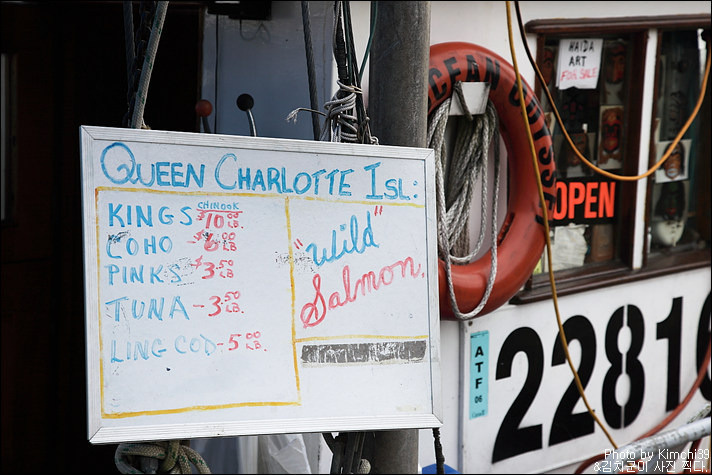 Photo by Kimchi39
&김치군이 사진 찍다.
HAIDA
ART
FOR SALE
OCEAN ODYSSEY
OPEN
QUEEN CHARLOTTE ISL:
CHINOOK
KINGS $10.00 LB.
COHO $6.00 LB.
PINKS - 3.50 LB.
TUNA - 3.50 LB.
LING COD - 5.00 LB.
"Wild"
Salmon.
ATF
06
22818